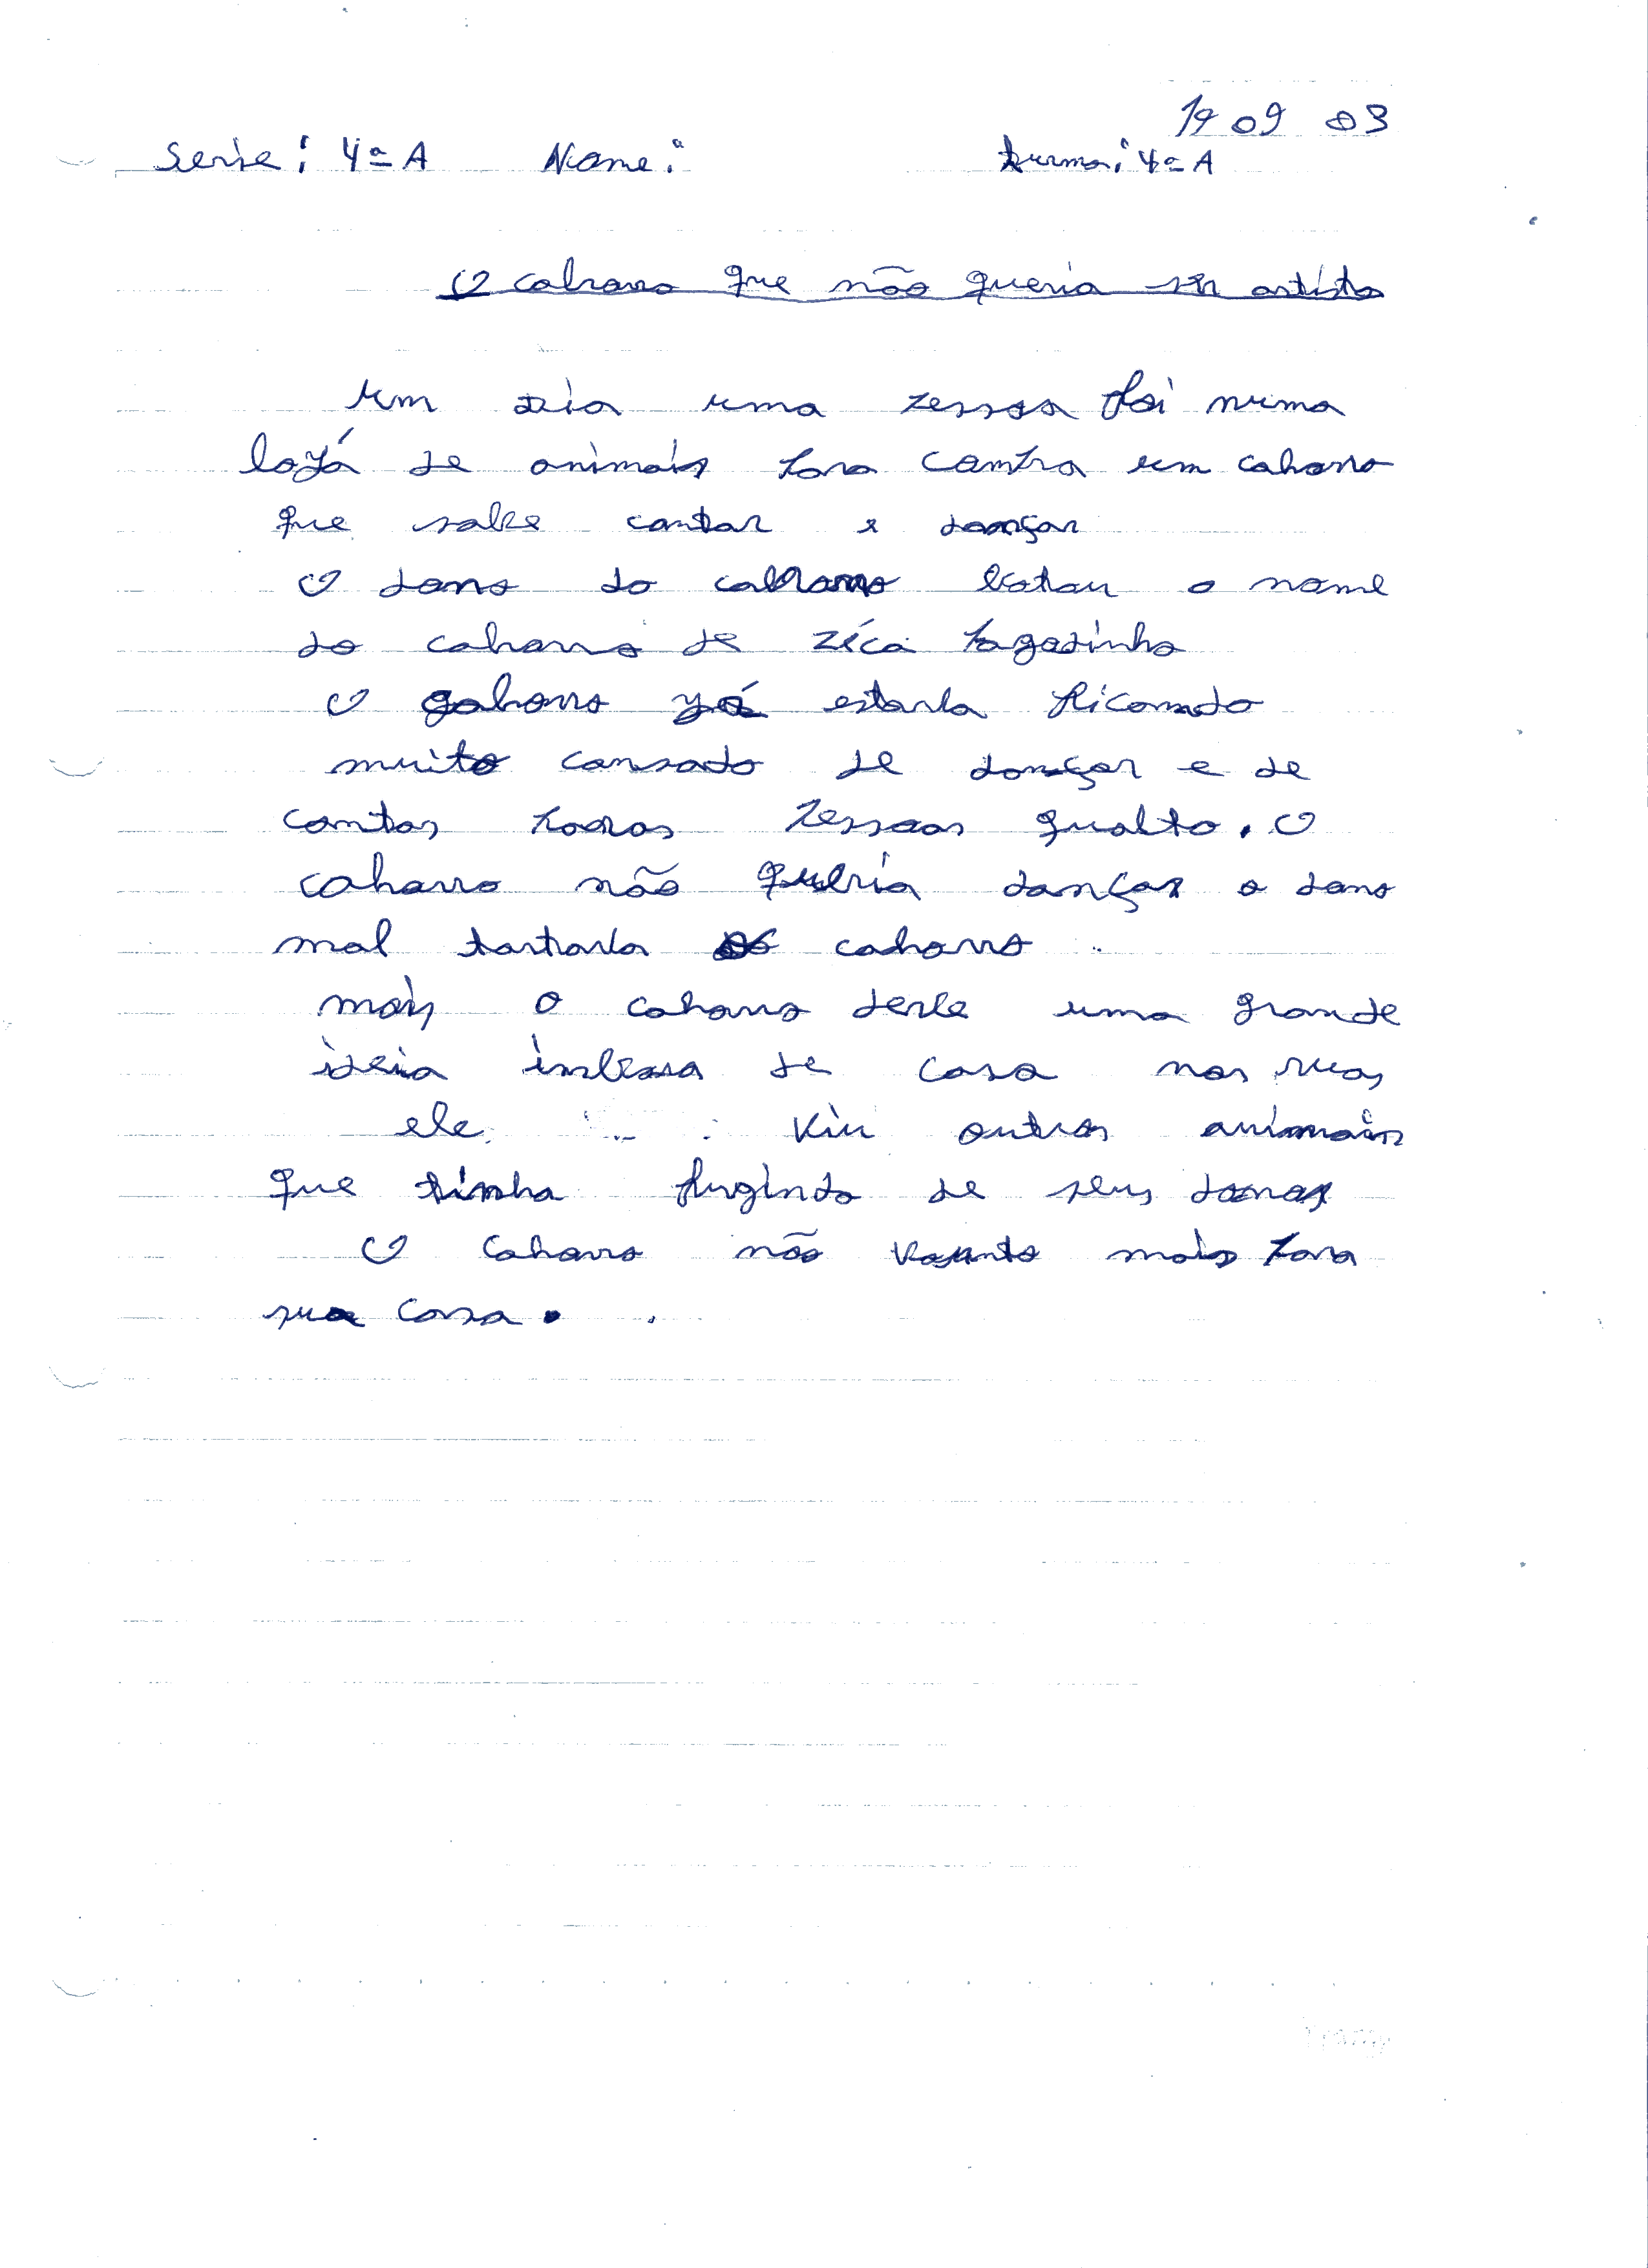 19 09 03
Serie: 4ª A Nome: turma: 4ª A
O cahorro que não queria ser artista
um dia uma pessoa foi numa
lojá de animais para compra um cahorro
que sabe cantar e dançar
O dono do cahorro botou o nome
do cahorro de zéca pagodinho
O cahorro já estava ficando
muito cansado de dançar e de
cantar para pessoas qualto. O
cahorro não queria dançar o dono
mal tratava o cahorro
mais o cahorro teve uma grande
ideia de casa nas ruas
ele viu outros animais
que tinha fugindo de seus donos
O cahorro não mais para
sua casa.